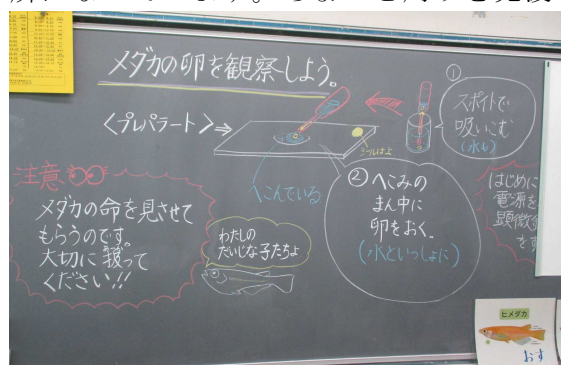 メダカの卵を観察しよう。
①
スポイトで
吸いこむ
(水も)
<プレパラート>⇒
シールは上
へこんでいる
②へこみの
まん中に
卵をおく。
(水といっしょに)
注意
メダカの命を見させて
もらうのです。
大切に扱って
ください!!
わたしの
だいじな子たちよ
はじめに
電源を
顕微鏡
ヒメダカ
おす